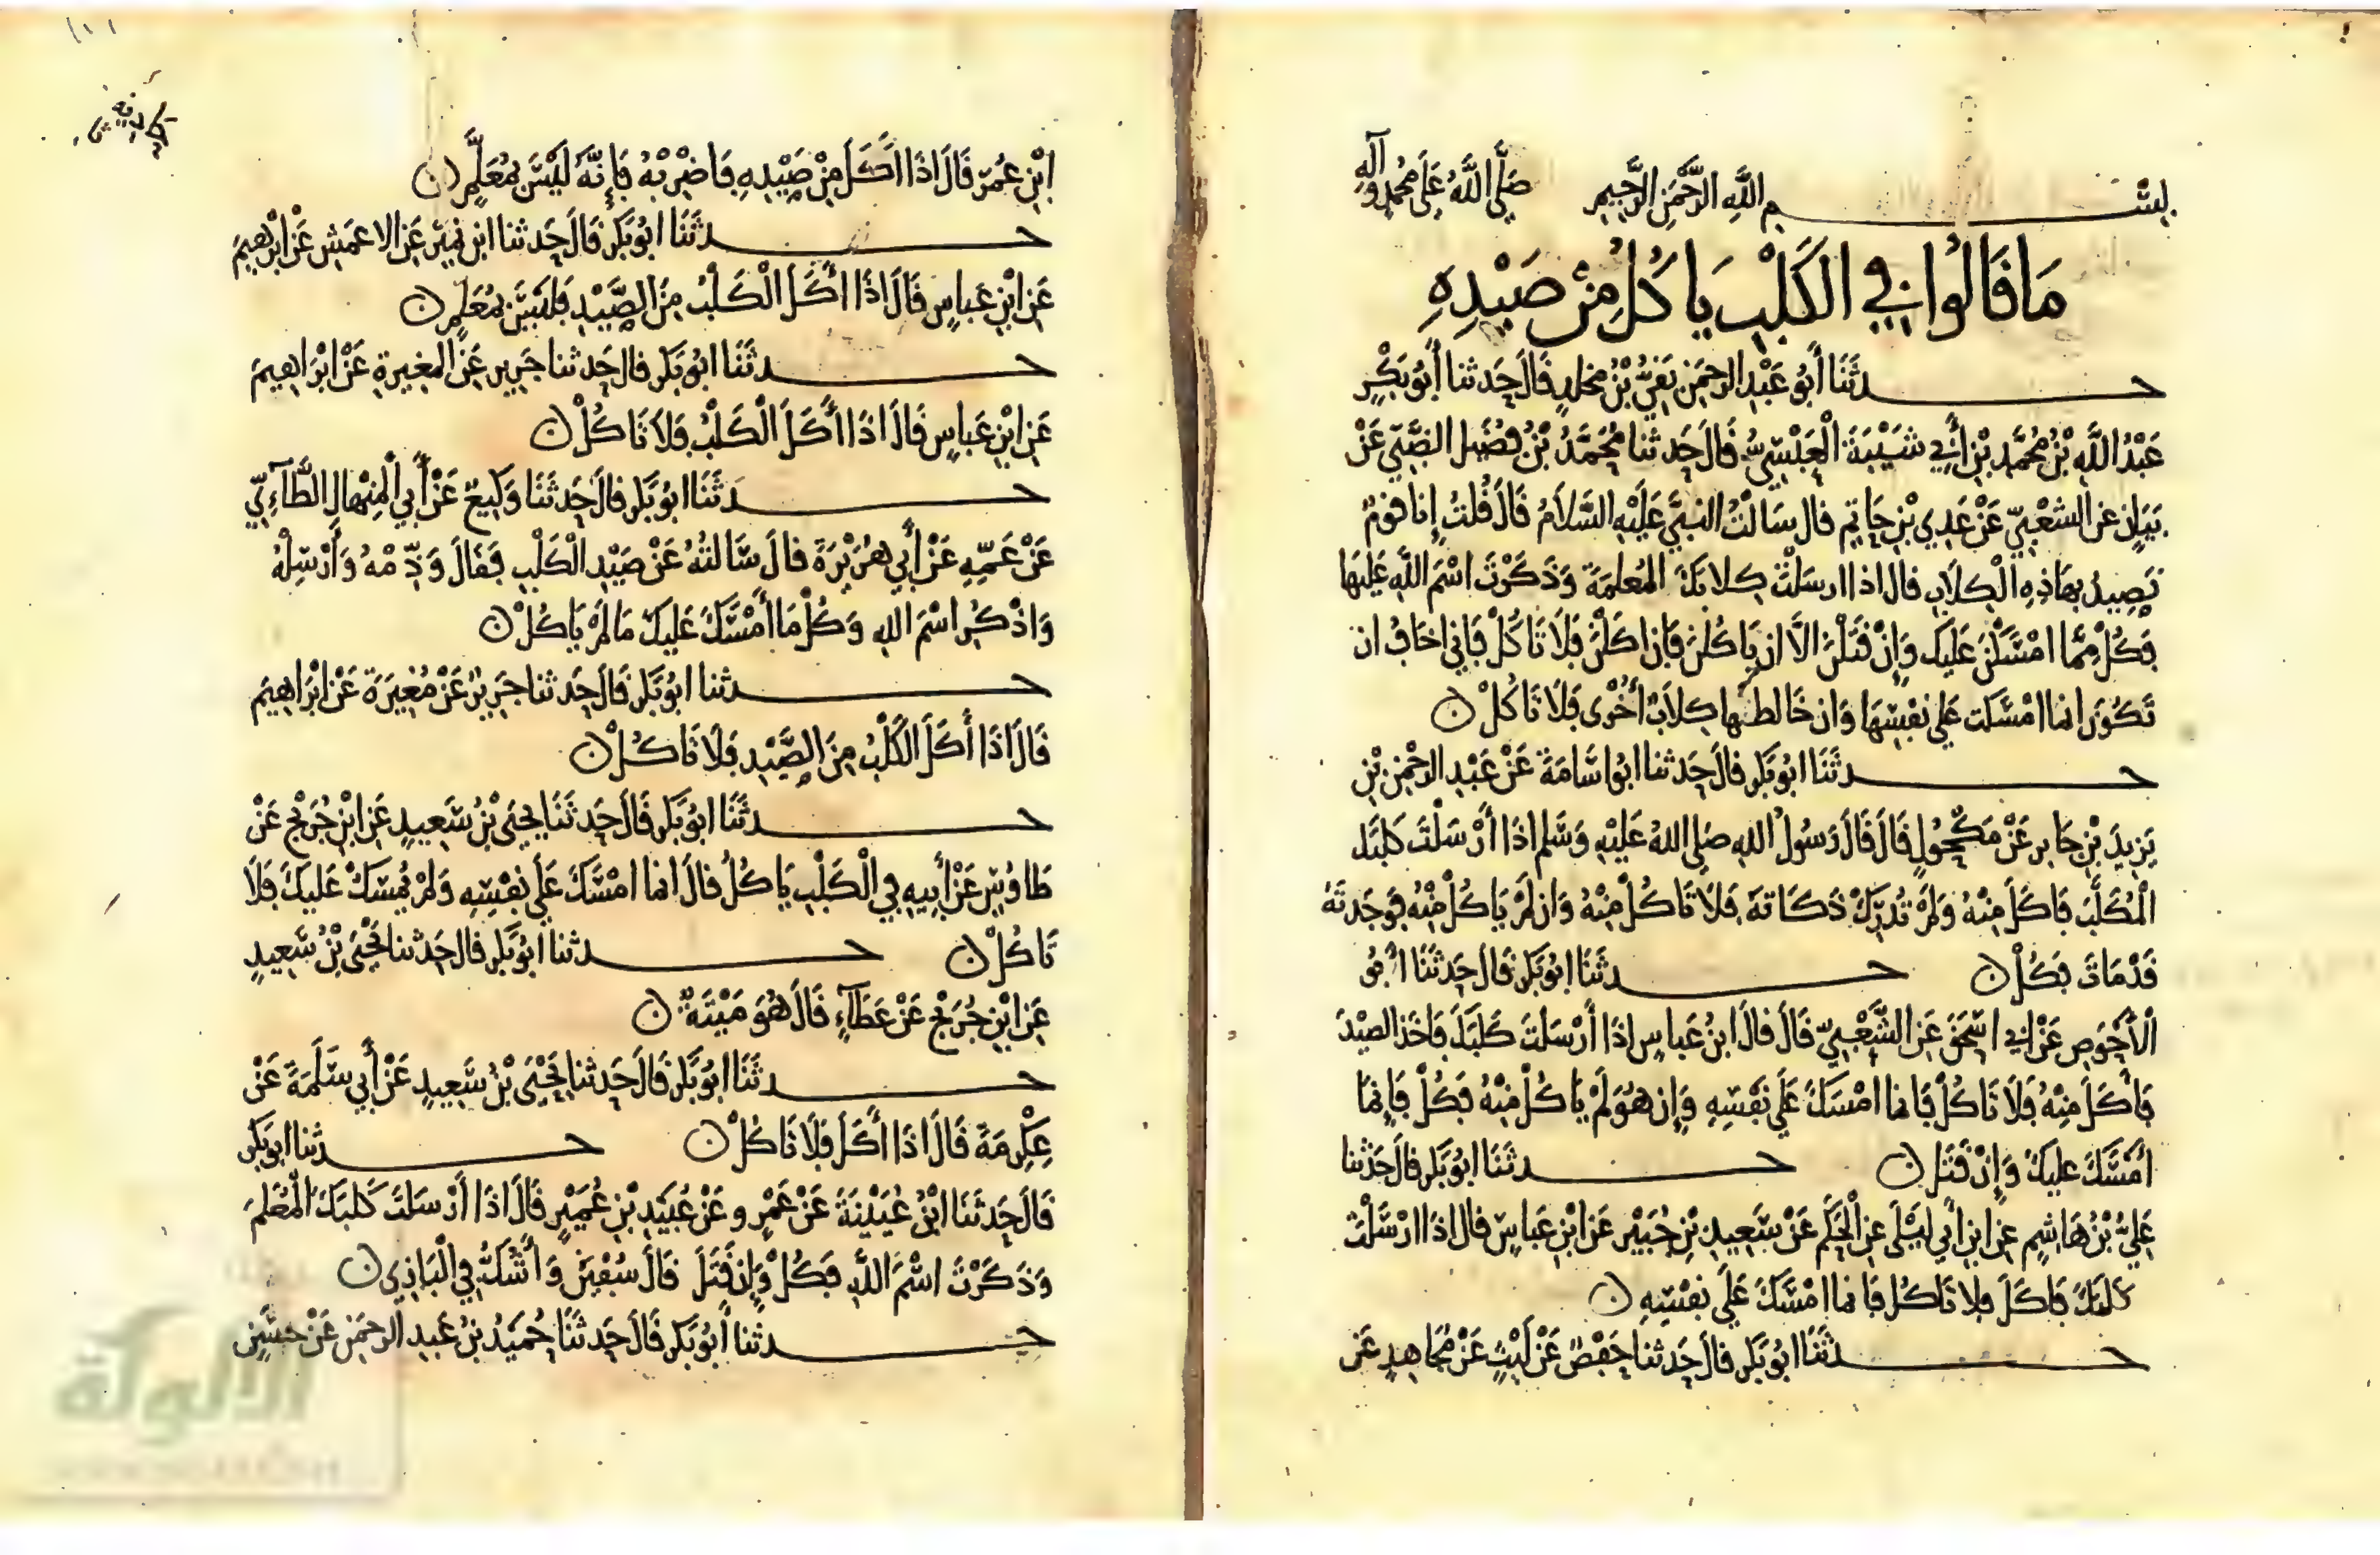 بسم الله الرحمن الرحيم صلى الله على محمد وآله
مَا قَالُوا فِي الكَلْبِ يَاكُلُ مِنْ صَيْدِهِ
حدثَنَا أَبُو عَبْدِ الرحمَنِ بَقِيُّ بْنُ مخلدٍ قَالَ حَدثنا أَبُو بَكْرٍ
عَبْدُ اللَّهِ بْنُ مُحَمَّدِ بْنِ أَبِي شَيْبَةَ الْعَبْسِيُّ قَالَ حَدثنا مُحَمَّدُ بْنُ فُضَيل الضَّبِّي عَنْ
بَيَانٍ عن الشعْبِيِّ عَنْ عَدِي بْنِ حَاتِمٍ قال سَالْتُ النبِيَّ عَلَيْهِ السَّلَامُ قَالَ قُلْتُ إنا قومٌ
نَصِيدُ بِهَاذِهِ الْكِلَابِ قال اذا ارسَلْتَ كِلَابَكَ المُعلمَةَ وَذَكَرْتَ اسْمَ اللَّهِ عَلَيهَا
فَكُلْ مِمَّا امْسَكْنَ عَلَيكَ وَإِنْ قَتَلْنَ الَّا ان يَاكُلْنَ فَإِن اكَلْنَ فَلَا تَاكُلْ فَإني اخَافُ ان
تَكُونَ انما امْسَكَت عَلى نفسِهَا وَان خَالطهَا كِلَابٌ أُخْرَى فَلَا تَاكُلْ ن
حدثَنَا ابُو بَكر قالَ حَدثنا ابُو اسَامَةَ عَنْ عَبْدِ الرحْمَنِ بْنِ
يَزِيدَ بْنِ جَابر عَنْ مَكْحُولٍ قَالَ قَالَ رَسُولُ اللهِ صَلى اللهُ عَلَيْهِ وَسَلم اذَا أَرْسَلْتَ كَلبَكَ
الْمُكَلَّبَ فَاكَلَ مِنْهُ وَلَمْ تُدْرِكْ ذَكَاتَهُ فَلَا تَاكُلْ مِنْهُ وَان لَمْ يَاكُلْ مِنْهُ فَوَجَدتَهُ
قَدْ مَاتَ فَكُلْ ن حدثَنَا ابُو بَكر قَالَ حَدثَنَا ابُو
الْأَحْوَصِ عَنْ ابي اسْحَقَ عَنِ الشَّعْبِيِّ قَالَ قالَ ابنُ عَباسٍ اذَا أَرْسَلتَ كَلبَكَ فَاخَذَ الصيْدَ
فَأَكَلَ مِنْهُ فَلَا تَاكُلْ فَانما امْسَكَ عَلَى نَفْسِهِ وَإِن هُوَ لَمْ يَاكُلْ مِنْهُ فَكُلْ فَإنما
أمْسَكَ عليكَ وَإِنْ قَتَلَ ن حدثَنَا ابُو بَكر قالَ حَدثنا
عَلِيُّ بْنُ هَاشِمٍ عن ابن أبي لَيْلَى عن الْحَكَم عَنْ سَعِيدِ بْنِ جُبَيْر عَن ابْنِ عَباسٍ قال اذَا ارْسَلْتَ
كلبَكَ فَاكَلَ فلا تَاكُل فَانما امْسَكَ عَلَى نفْسِهِ ن
حدثَنَا ابُو بَكر قالَ حَدثنا حَفْصٌ عَنْ لَيْثٍ عَنْ مُجَاهِدٍ عَن
ابْنِ عُمَرَ قَالَ اذَا اكَلَ مِنْ صَيْدِهِ فَاضْرِبْهُ فَإِنَّهُ لَيْسَ بمُعَلَّمٍ ن
حدثَنَا ابُو بَكر قالَ حَدثنا ابن نُمَيْر عَن الاعمَشِ عَنْ ابْرهِيمَ
عَنِ ابْنِ عَباسٍ قَالَ اذَا اكَلَ الْكَلْبُ مِنَ الصَّيْدِ فَلَيْسَ بمُعَلمٍ ن
حدثَنَا ابُو بَكر قال حَدثنا جَرِير عَنِ المغِيرةِ عَنْ ابْرَاهِيمَ
عَنِ ابْنِ عَباسٍ قَالَ اذَا أكَلَ الْكَلْبُ فَلَا تَاكُلْ ن
حدثَنَا ابُو بَكر قالَ حَدثَنَا وَكِيعٌ عَنْ أَبِي الْمِنْهَالِ الطَّآءِيِّ
عَنْ عَمِّهِ عَنْ أَبِي هُرَيْرَةَ قالَ سَالتُهُ عَنْ صَيْدِ الْكَلْبِ فَقَالَ وَذِّمْهُ وَأَرْسِلْهُ
وَاذْكُر اسْمَ اللهِ وَكُلْ مَا أَمْسَكَ عَلَيكَ مَا لَمْ يَاكُلْ ن
حدثنا ابُو بَكر قَالَ حَدثنا جَرِيرٌ عَنْ مُغِيرَةَ عَنْ ابْرَاهِيمَ
قَالَ اذَا أَكَلَ الكَلْبُ مِنَ الصَّيْدِ فَلَا تَاكُلْ ن
حدثَنَا ابُو بَكر قَالَ حَدثَنَا يَحْيَى بْنُ سَعِيدٍ عَنِ ابْنِ جُرَيْجٍ عَنْ
طَاوُسٍ عَنْ أَبِيهِ فِي الْكَلْبِ يَاكُلُ قالَ انما امْسَكَ عَلَى نَفْسِهِ وَلَمْ يُمْسِكْ عَليكَ فَلَا
تَاكُلْ ن حدثنا ابُو بَكر قال حَدثنا يَحْيَى بْنُ سَعِيدٍ
عَنِ ابْنِ جُرَيْجٍ عَنْ عَطَآءٍ قَالَ هُوَ مَيْتَةٌ ن
حدثَنَا ابُو بَكر قَالَ حَدثنا يَحْيَى بْنُ سَعِيدٍ عَنْ أَبِي سَلَمَةَ عَنْ
عِكْرِمَةَ قَالَ اذَا أكَلَ فَلَا تَاكُلْ ن حدثنا ابُو بَكر
قَالَ حَدثَنَا ابْنُ عُيَيْنَةَ عَنْ عَمْرٍو عَنْ عُبَيْدِ بْنِ عُمَيْرٍ قَالَ اذَا أَرْسَلتَ كَلبَكَ الْمُعَلمَ
وَذَكَرْتَ اسْمَ اللَّهِ فَكُلْ وَإِن قَتَلَ قَالَ سُفْيَن وَأَشُكُّ فِي الْبَازِي ن
حدثنا أَبُو بَكر قَالَ حَدثَنَا حُمَيْدُ بْنُ عَبدِ الرحمَنِ عَنْ حسَنِ
الألوكة